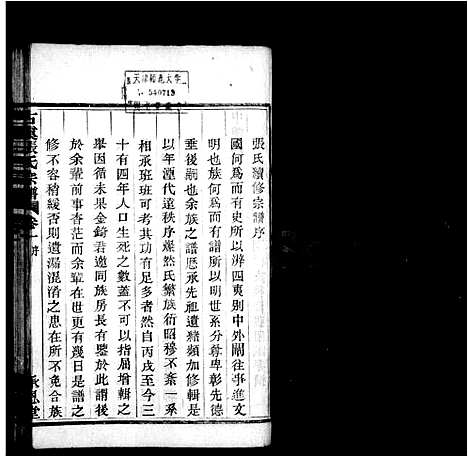 張氏續修宗譜序
國何爲而有史所以湃四夷別中外闡往事進文
明也族何爲而有譜所以明世系分尊卑彰先德
垂後嗣也余族之譜歷承先祖遺緖頻加修輯是
以年湮代遠秩序燦然氏繁族衍昭穆不紊一系
相承班班可考其功良有足多者然自丙戌至今三
十有四年人口生死之數蓋不可以指屈增輯之
舉因循未果金錡君邀同族房長有鑒於此謂後
於余輩前事杳茫而余輩在世更有幾日是譜之
修不容稍緩否則遺漏混淆之患在所不免合族
古虞張氏宗譜 卷一 序 承恩堂
天津師範大学
540719